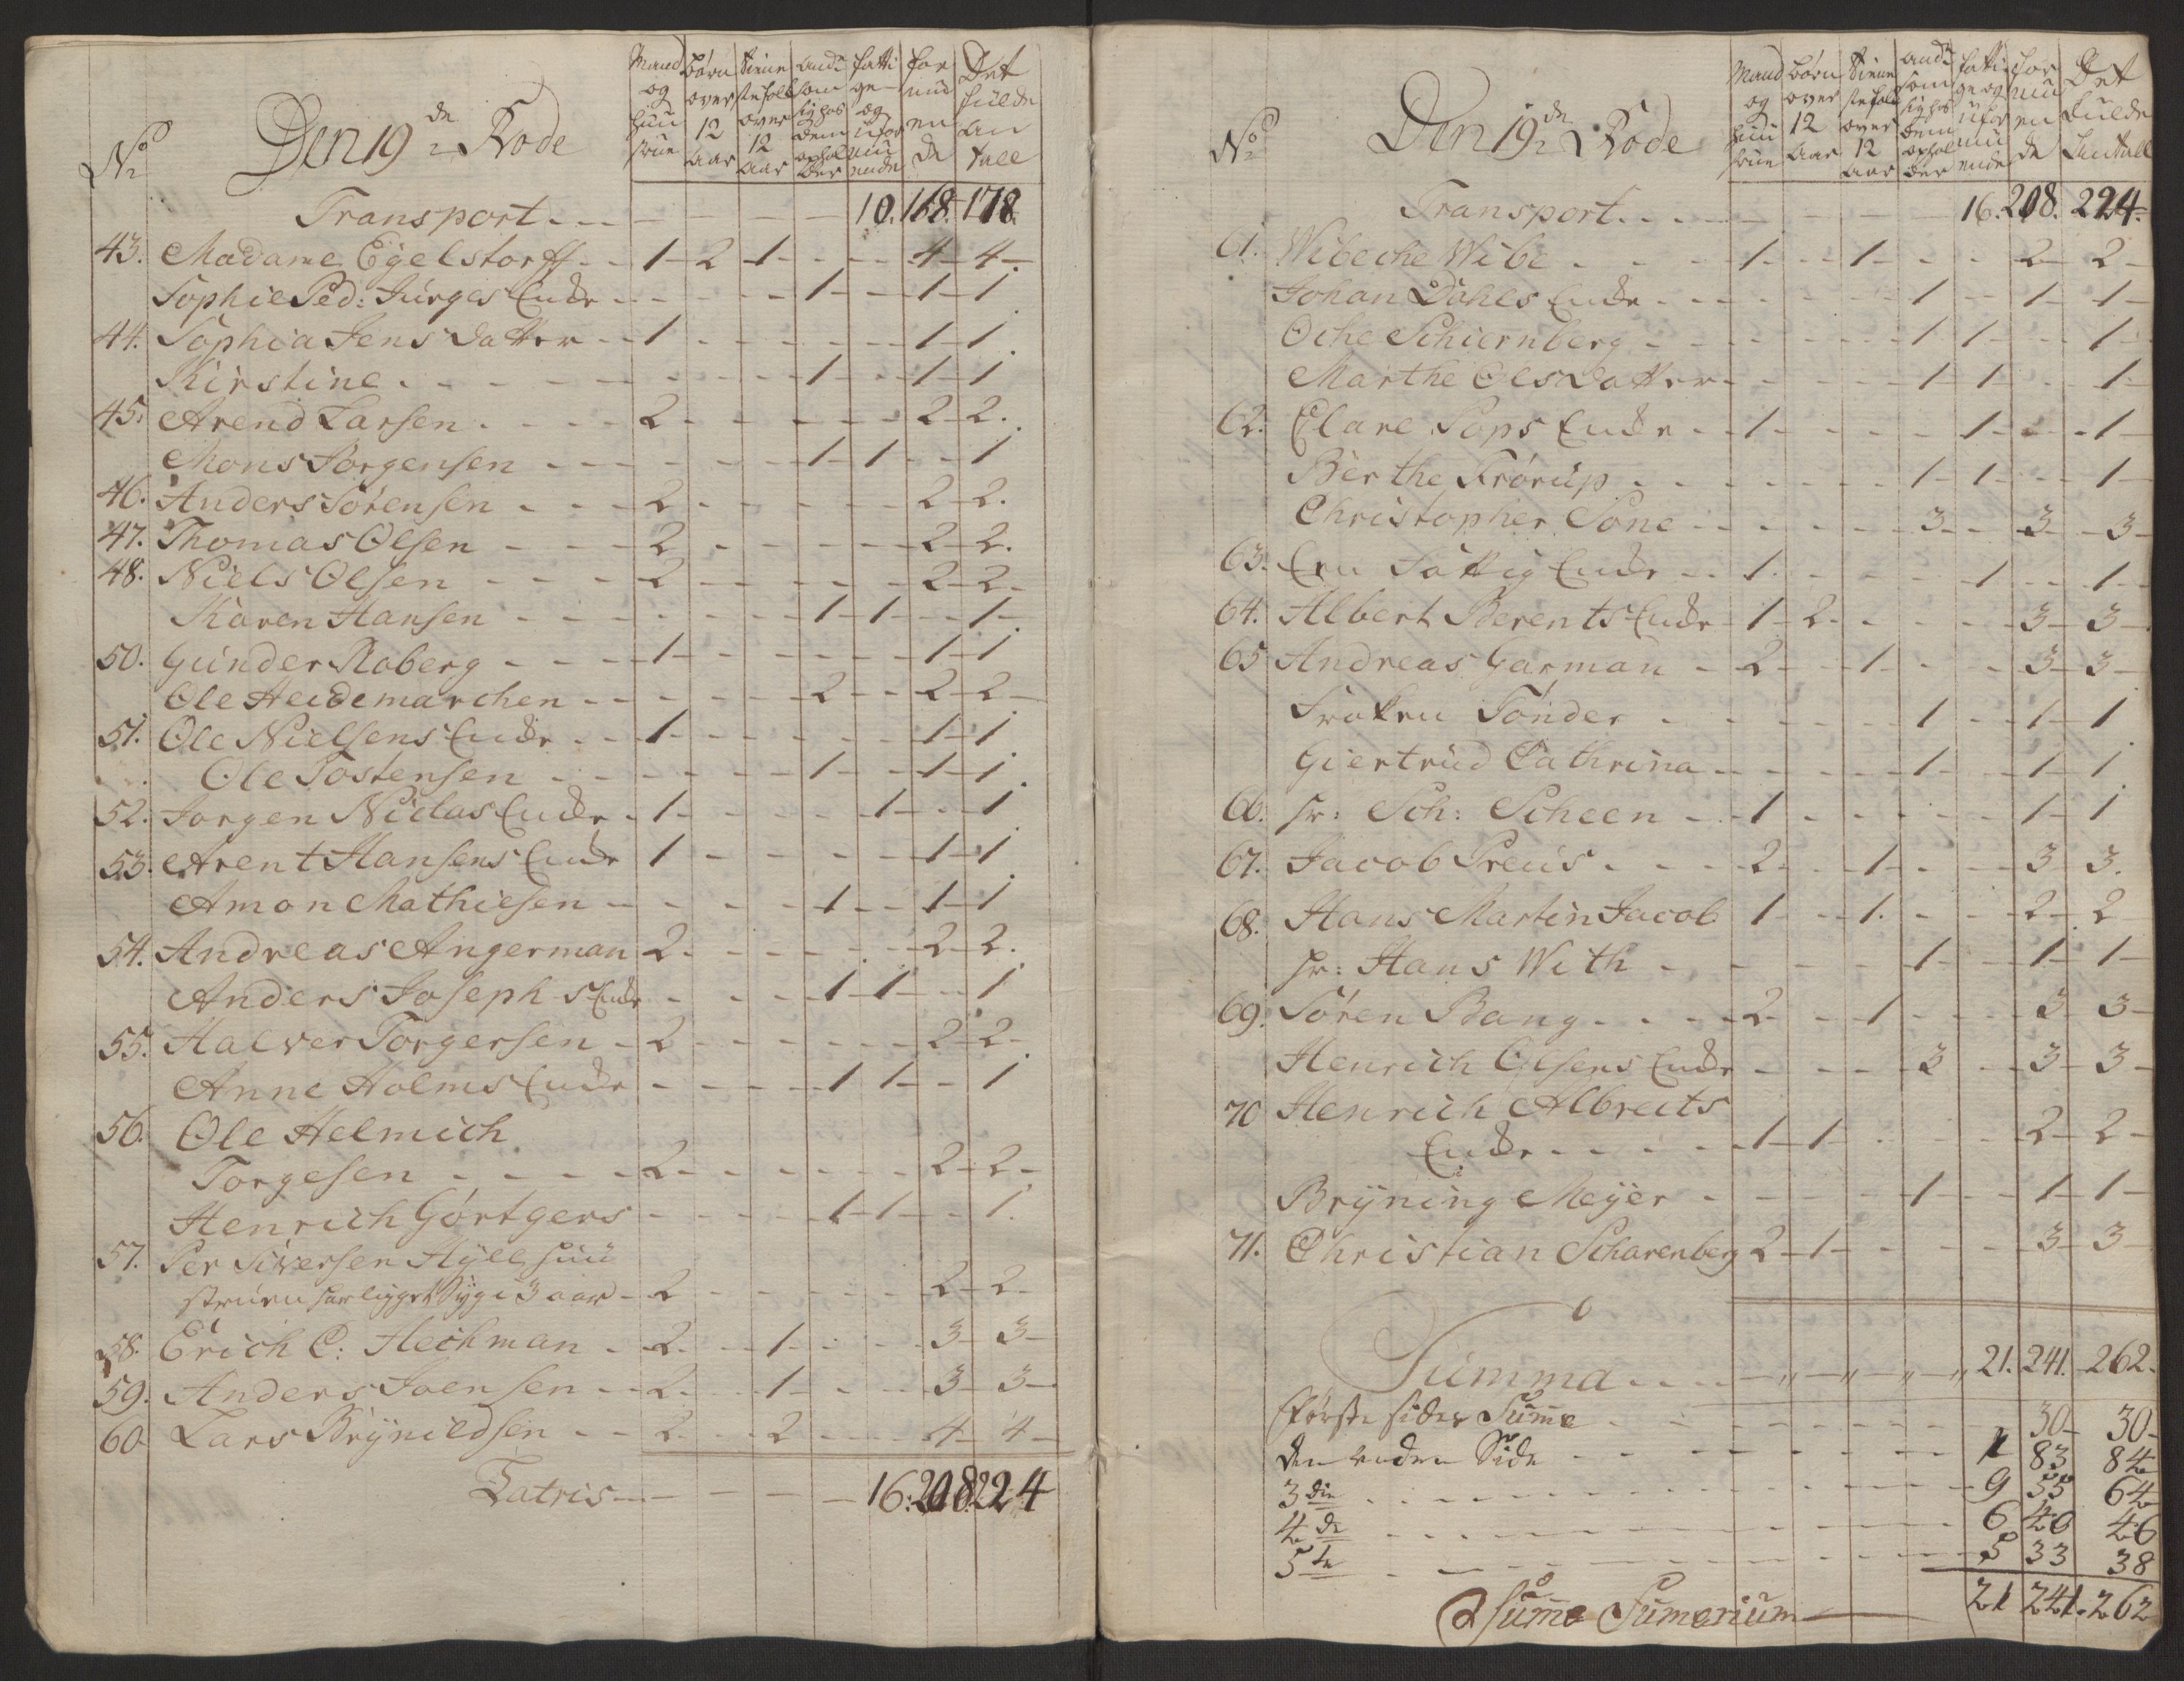 No Den 19de Rode
Mand og huustrue
Børn over 12 Aar
Tieneste folk over 12 Aar
Andre som sig hos dem opholder
fatti ge og ufor muende
for mu en de
Det fulde an tall
Transport - - - 10. 168. 178.
43. Madame Egelstorff - - 1 - 2 - 1 - - - 4 - 4 -
Sophie Ped: Jürges Encke - - - - - 1 - - 1 - 1
44. Sophia Jens datter - - 1 - - - - - 1 - 1
Kirstine - - - - - 1 - - 1 - 1
45. Arend Larsen - - - 2 - - - - - 2 - 2.
Mons Jorgensen - - - - - 1 - 1 - - 1
46. Anders Sörensen - - - 2 - - - - 2 - 2.
47. Thomas Olsen - - - 2 - - - - 2 - 2.
48. Niels Olsen - - - - 2 - - - - 2 - 2 -
Karen Hansen - - - - - 1 - 1 - - 1 -
50. Gunder Roberg - - - - 1 - - - - - 1 - 1
Ole Heidemarchen - - - - - 2 - - 2 - 2 -
51. Ole Nielsens Encke - - 1 - - - - - 1 - 1
Ole Tostensen - - - - - 1 - - 1 - 1
52. Jorgen Niclas Encke - 1 - - - - 1 - - 1
53. Arent Hansens Encke 1 - - - - - 1 - 1
Amon Mathiesen - - - - - 1 - - 1 - 1
54. Andreas Angerman 2 - - - - - 2 - 2.
Anders Josephs Encke - - - - 1 - 1 - - 1
55. Halver Torgersen - 2 - - - - - 2 - 2 -
Anne Holms Encke - - - - 1 1 - - 1
56. Ole Helmich
Torgesen - - - - 2 - - - - - 2 - 2 -
Henrich Görtgers - - - - 1 - 1 - - 1.
57. Per Siversen Hÿll huu
struen har ligget syg i 3 aar - 2 - - - - - 2 - 2 -
58. Erich C: Heckman - 2 - - 1 - - - 3 - 3 -
59. Anders Joensen - - 2 - - 1 - - - 3 - 3 -
60 Lars Brÿnildsen - - 2 - - 2 - - - 4 - 4 -
Latris - - - - - 16. 208. 224
No Den 19de Rode
Mand og huu srue
Børn over 12 Aar
Tiene ste folk over 12 Aar
Andre som sig hos dem ophol der
fatti ge og ufor mu ende
for mu en de
Det fulde Antall
Transport - - - - 16. 208. 224.
61. Wibeche Wibe - - - 1 - - 1 - - - 2 - 2 -
Johan Dahls Encke - - - - - 1 - - 1 - 1 -
Oche Schiernberg - - - - - 1 1 - - - 1 -
Marthe Olsdatter - - - - - 1 - 1 - - 1 -
62. Clare Pops Encke - - 1 - - - - 1 - - - 1 -
Berthe Frörup - - - - - 1 - 1 - - 1 -
Christopher Sone - - - - - 3 - - 3 - 3 -
63. Een fattig Encke - - 1 - - - - 1 - - 1 -
64. Albert Berents Encke 1 - 2 - - - - 3 - 3 -
65 Andreas Garman - 2 - - 1 - - - 3 - 3 -
Frøken Tönder - - - - - 1 - - 1 - 1
Giertrud Cathrina - - - - - 1 - - 1 - 1
66. Hr: Sch: Scheen - - 1 - - - - - 1 - 1
67. Jacob Preus - - - - 2 - - 1 - - - 3 3.
68. Hans Martin Jacob 1 - - 1. - - 2 - 2
Hr: Hans With - - - - - 1 - - 1 - 1 -
69. Sören Bang - - - - 2 - - 1 - - - 3 3 -
Henrich Olsens Encke - - - - 3 - - 3 - 3 -
70 Henrich Albreits
Encke - - - - - 1 - 1 - - - - 2 - 2 -
Brÿning Meÿer - - - - - 1 - - 1 - 1 -
71. Christian Scharenberg 2 - 1 - - - - 3 - 3
Summa - - - - „ - „ - „ - „ 21. 241. 262.
Første sides Sum̄e - - - - - - 30 - 30 -
den anden Side - - - - - - 1 83 84
3die - - - - - - 9 55 64
4de - - - - - - 6 40 46
5te - - - - - - 5 33 38
Sum̄a Sumarium — 21 241. 262